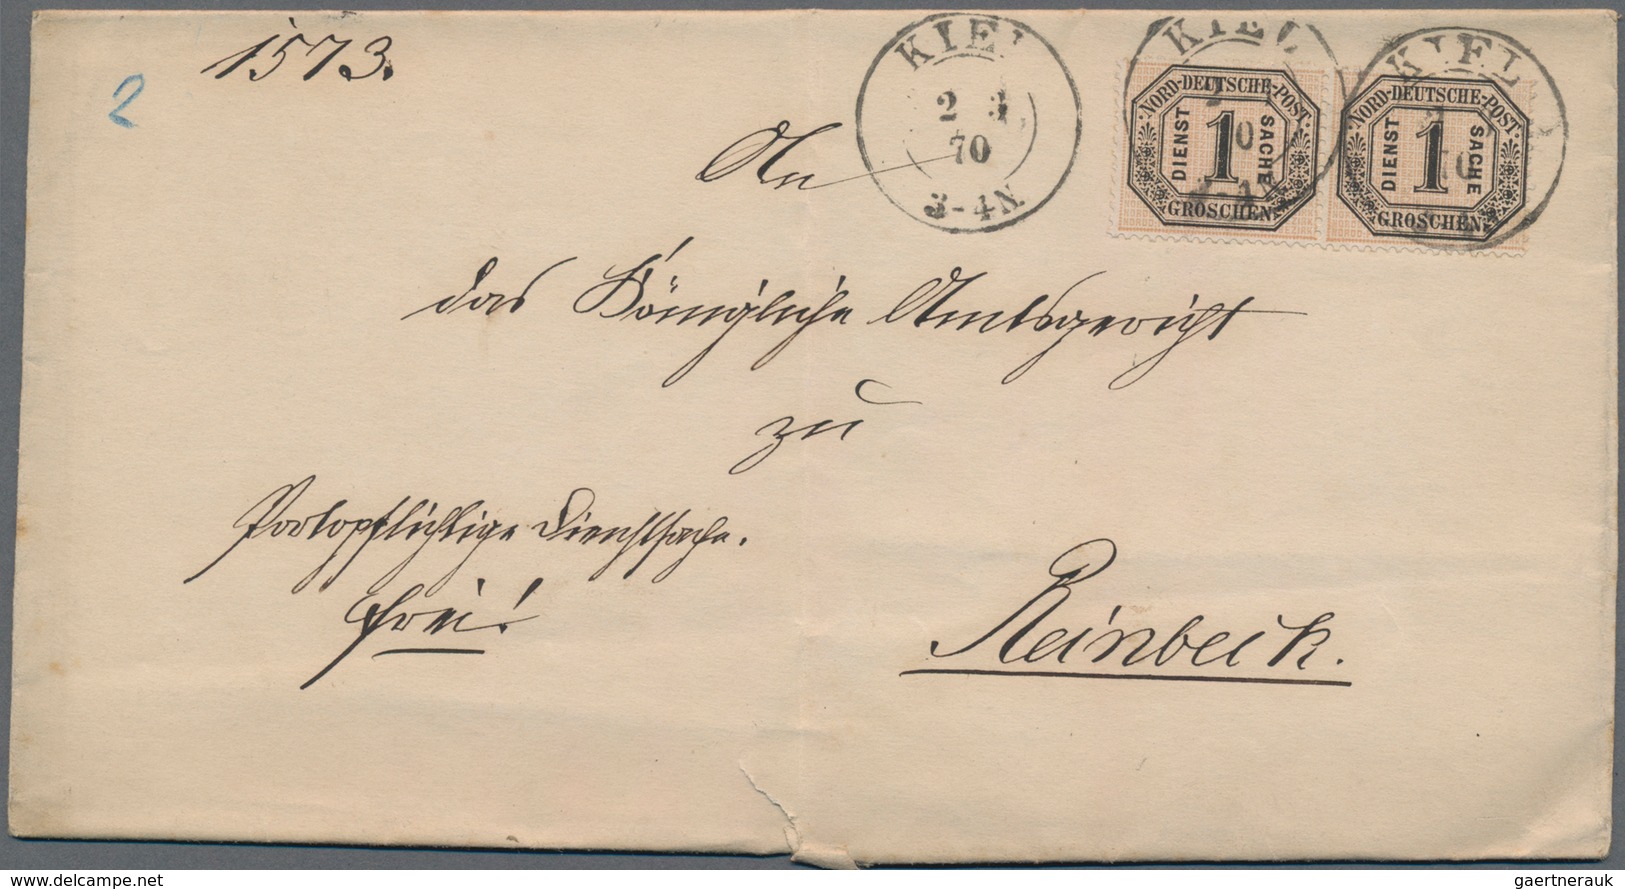 1573.
2
KIEL
2 3
70
3-4N.
KIEL
3-4N
KIEL
70
NORD-DEUTSCHE-POST
DIENST 1 SACHE
GROSCHEN
NORD-DEUTSCHE-POST
DIENST 1 SACHE
GROSCHEN
An
das Königliche Amtsgericht
zu
Portopflichtige Dienstsache.
frei!
Reinbeck.
www.delcampe.net
gaertnerauk